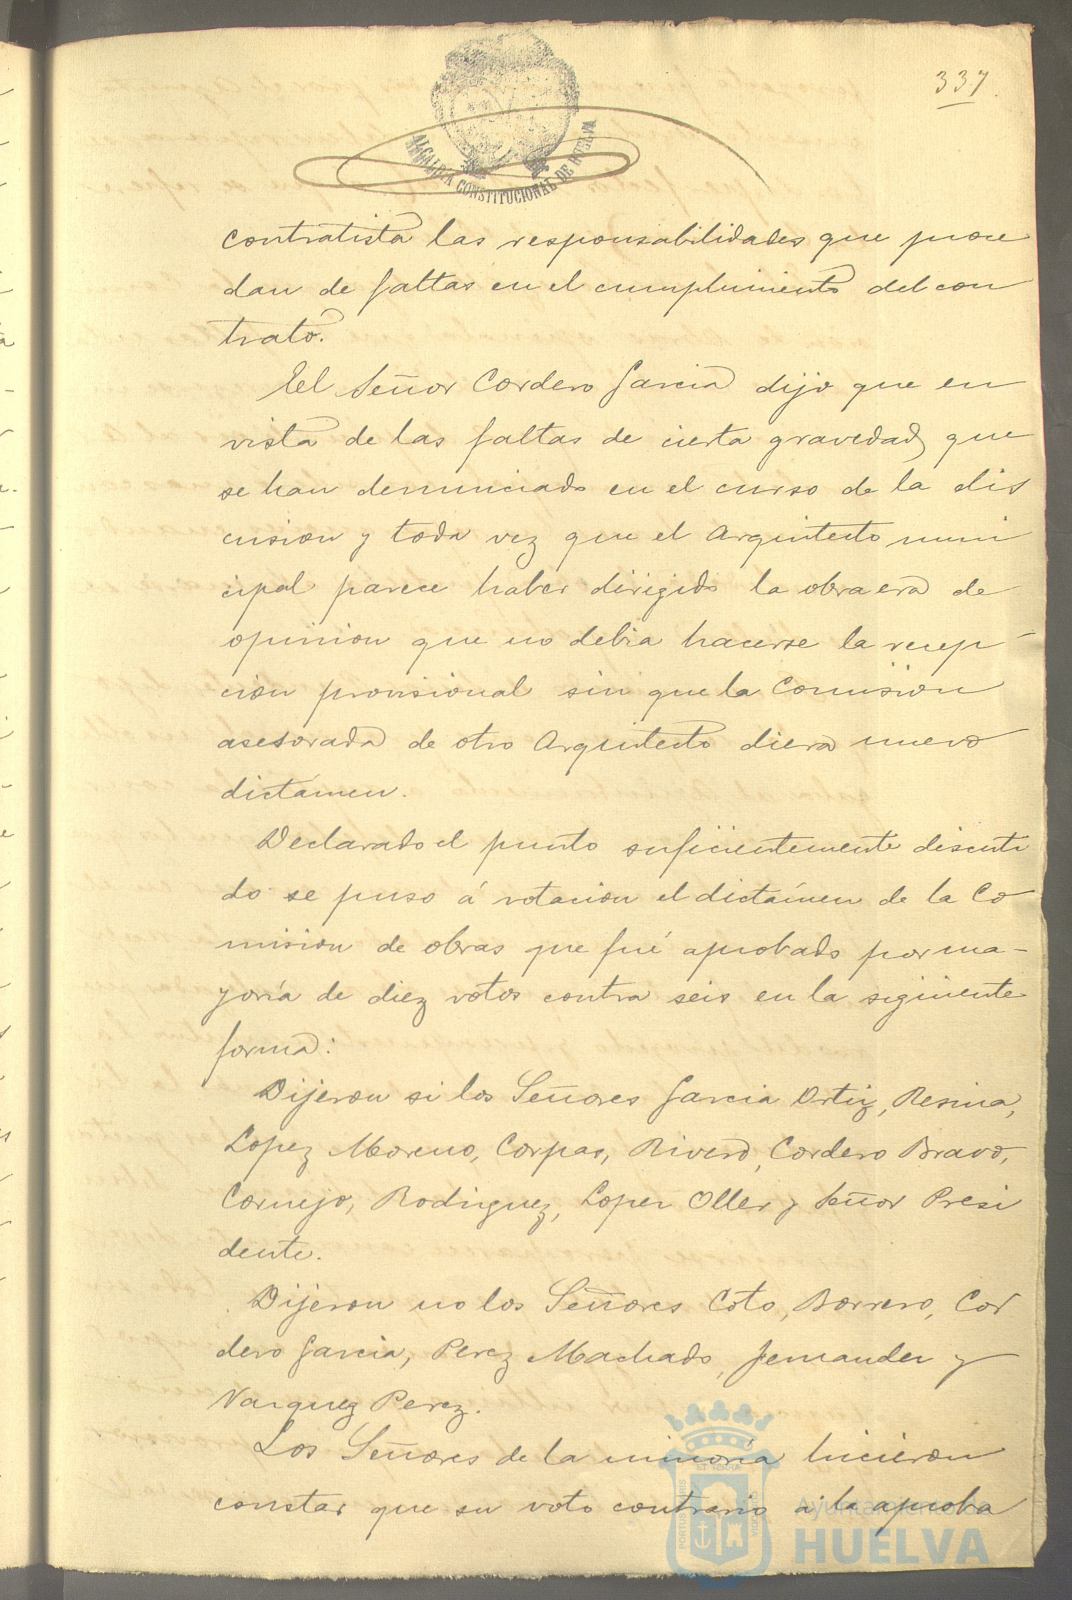 337.
ALCALDÍA CONSTITUCIONAL DE HUELVA
contratista las responsabilidades que proce
dan de faltas en el cumplimiento del con
trato.
El Señor Cordero Garcia dijo que en
vista de las faltas de cierta gravedad, que
se han denunciado en el curso de la dis
cusion y toda vez que el Arquitecto muni
cipal parece haber dirigido la obra era de
opinion que no debia hacerse la recep-
cion provisional sin que la Comision
asesorada de otro Arquitecto diera nuevo
dictámen.
Declarado el punto suficientemente discuti
do se puso á votacion el dictámen de la Co
mision de obras que fué aprobado por ma-
yoría de diez votos contra seis en la siguiente
forma:
Dijeron si los Señores Garcia Ortiz, Resina,
Lopez Moreno, Corpas, Rivero, Cordero Bravo,
Cornejo, Rodriguez, Lopez Oller y Señor Presi
dente.
Dijeron no los Señores Coto, Borrero, Cor
dero Garcia, Perez Machado, Fernandez y
Vazquez Perez.
Los Señores de la minoría hicieron
constar que su voto contrario a la aproba
Ayuntamiento de
HUELVA